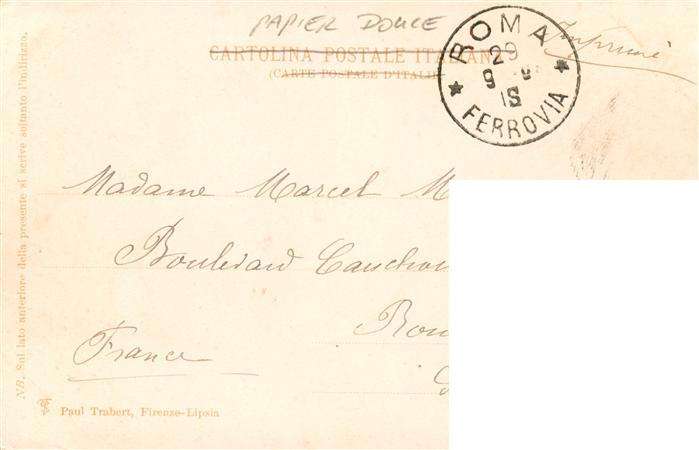 PAPIER DOUCE
CARTOLINA POSTALE ITALIANA
(CARTE POSTALE D'ITALIE)
ROMA
29
9
15
FERROVIA
Imprimé
NB. Sul lato anteriore della presente si scrive soltanto l'indirizzo.
Madame Marcel M
Boulevard Cauchon
Rou
France
Paul Trabert, Firenze-Lipsia